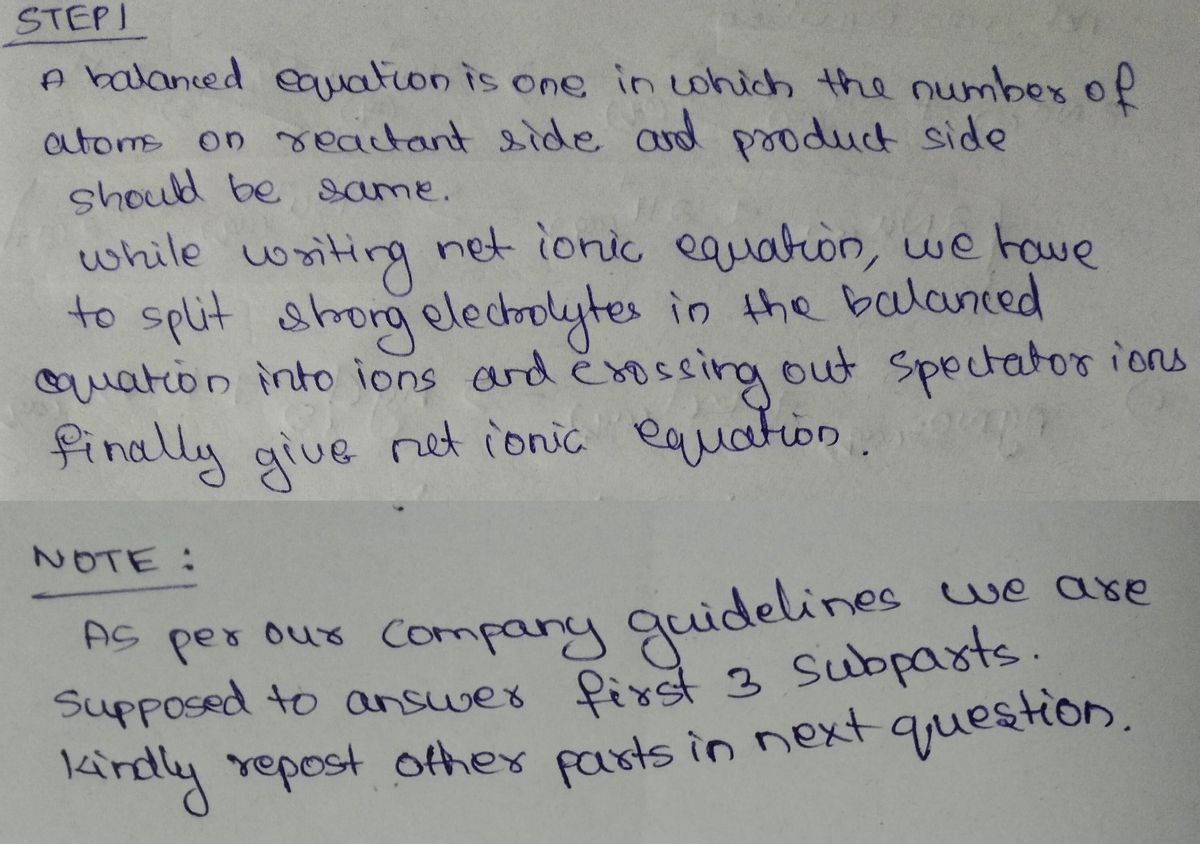 STEP 1
A balanced equation is one in which the number of
atoms on reactant side and product side
should be same.
while writing net ionic equation, we have
to split strong electrolytes in the balanced
equation into ions and crossing out spectator ions
finally give net ionic equation.
NOTE :
As per our company guidelines we are
supposed to answer first 3 subparts.
kindly repost other parts in next question.